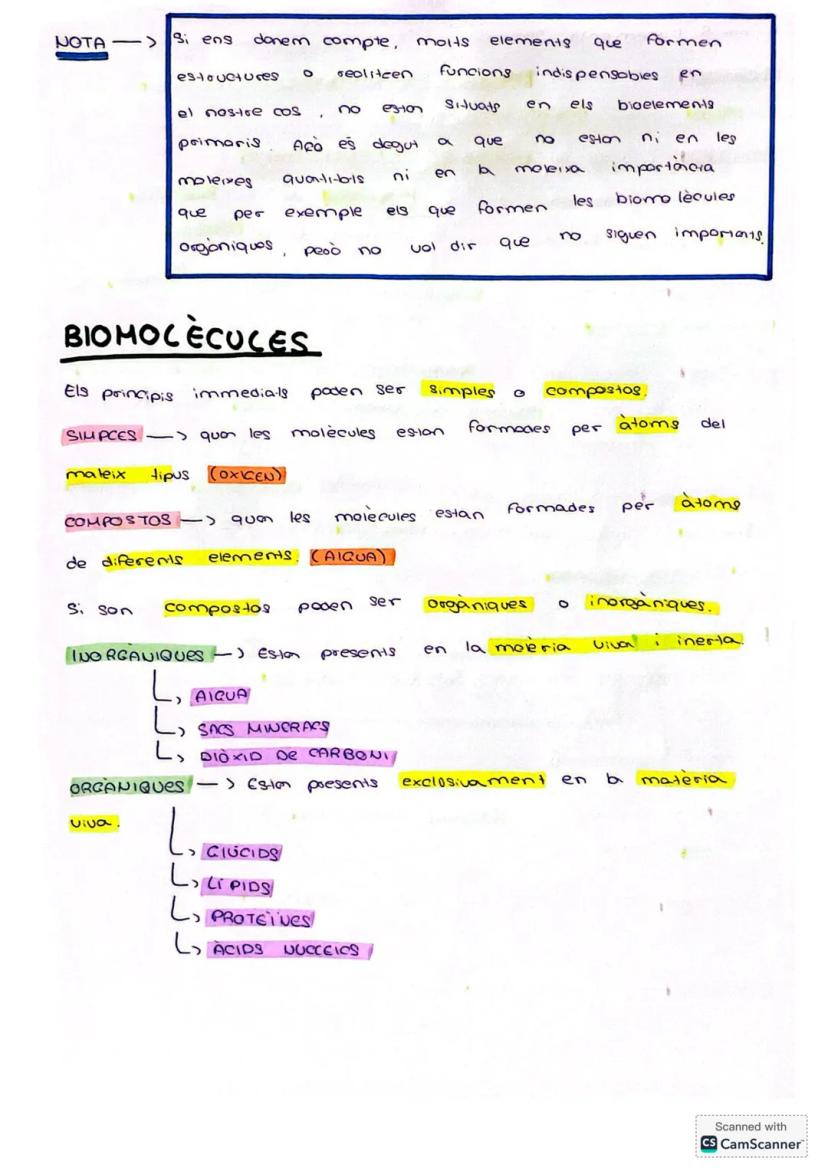 NOTA —> Si ens donem compte, molts elements que formen
estructures o realitzen funcions indispensables en
el nostre cos, no estan situats en els bioelements
primaris. Açò és degut a que no estan ni en les
mateixes quantitats ni en la mateixa importància
que per exemple els que formen les biomolècules
orgàniques, però no vol dir que no siguen importants.
BIOMOLÈCULES
Els principis immediats poden ser simples o compostos.
SIMPLES —> quan les molècules estan formades per àtoms del
mateix tipus (OXIGEN)
COMPOSTOS —> quan les molècules estan formades per àtoms
de diferents elements. (AIGUA)
Si son compostos poden ser orgàniques o inorgàniques.
INORGÀNIQUES —> Estan presents en la matèria viva i inerta.
AIGUA
SALS MINERALS
DIÒXID DE CARBONI
ORGÀNIQUES —> Estan presents exclosivament en la matèria
viva.
GLÚCIDS
LÍPIDS
PROTEÏNES
ÀCIDS NUCLEICS
Scanned with
CS CamScanner